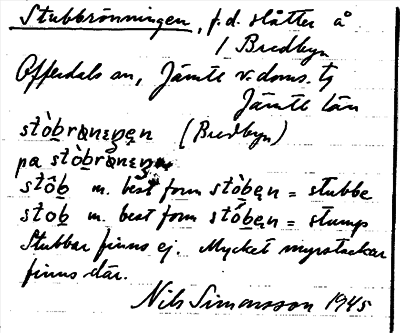 Stubbrönningen, f.d. slåtter å
/ Bredbyn
Offerdals sn, Jämtl v. doms. tj
Jämtl län
(Bredbyn)
pa
stöb m. best form stòbęn = stubbe
stob m. best form stöbęn = stump
Stubbar finns ej. Mycket myrstackar
finns där.
Nils Simonsson 1945